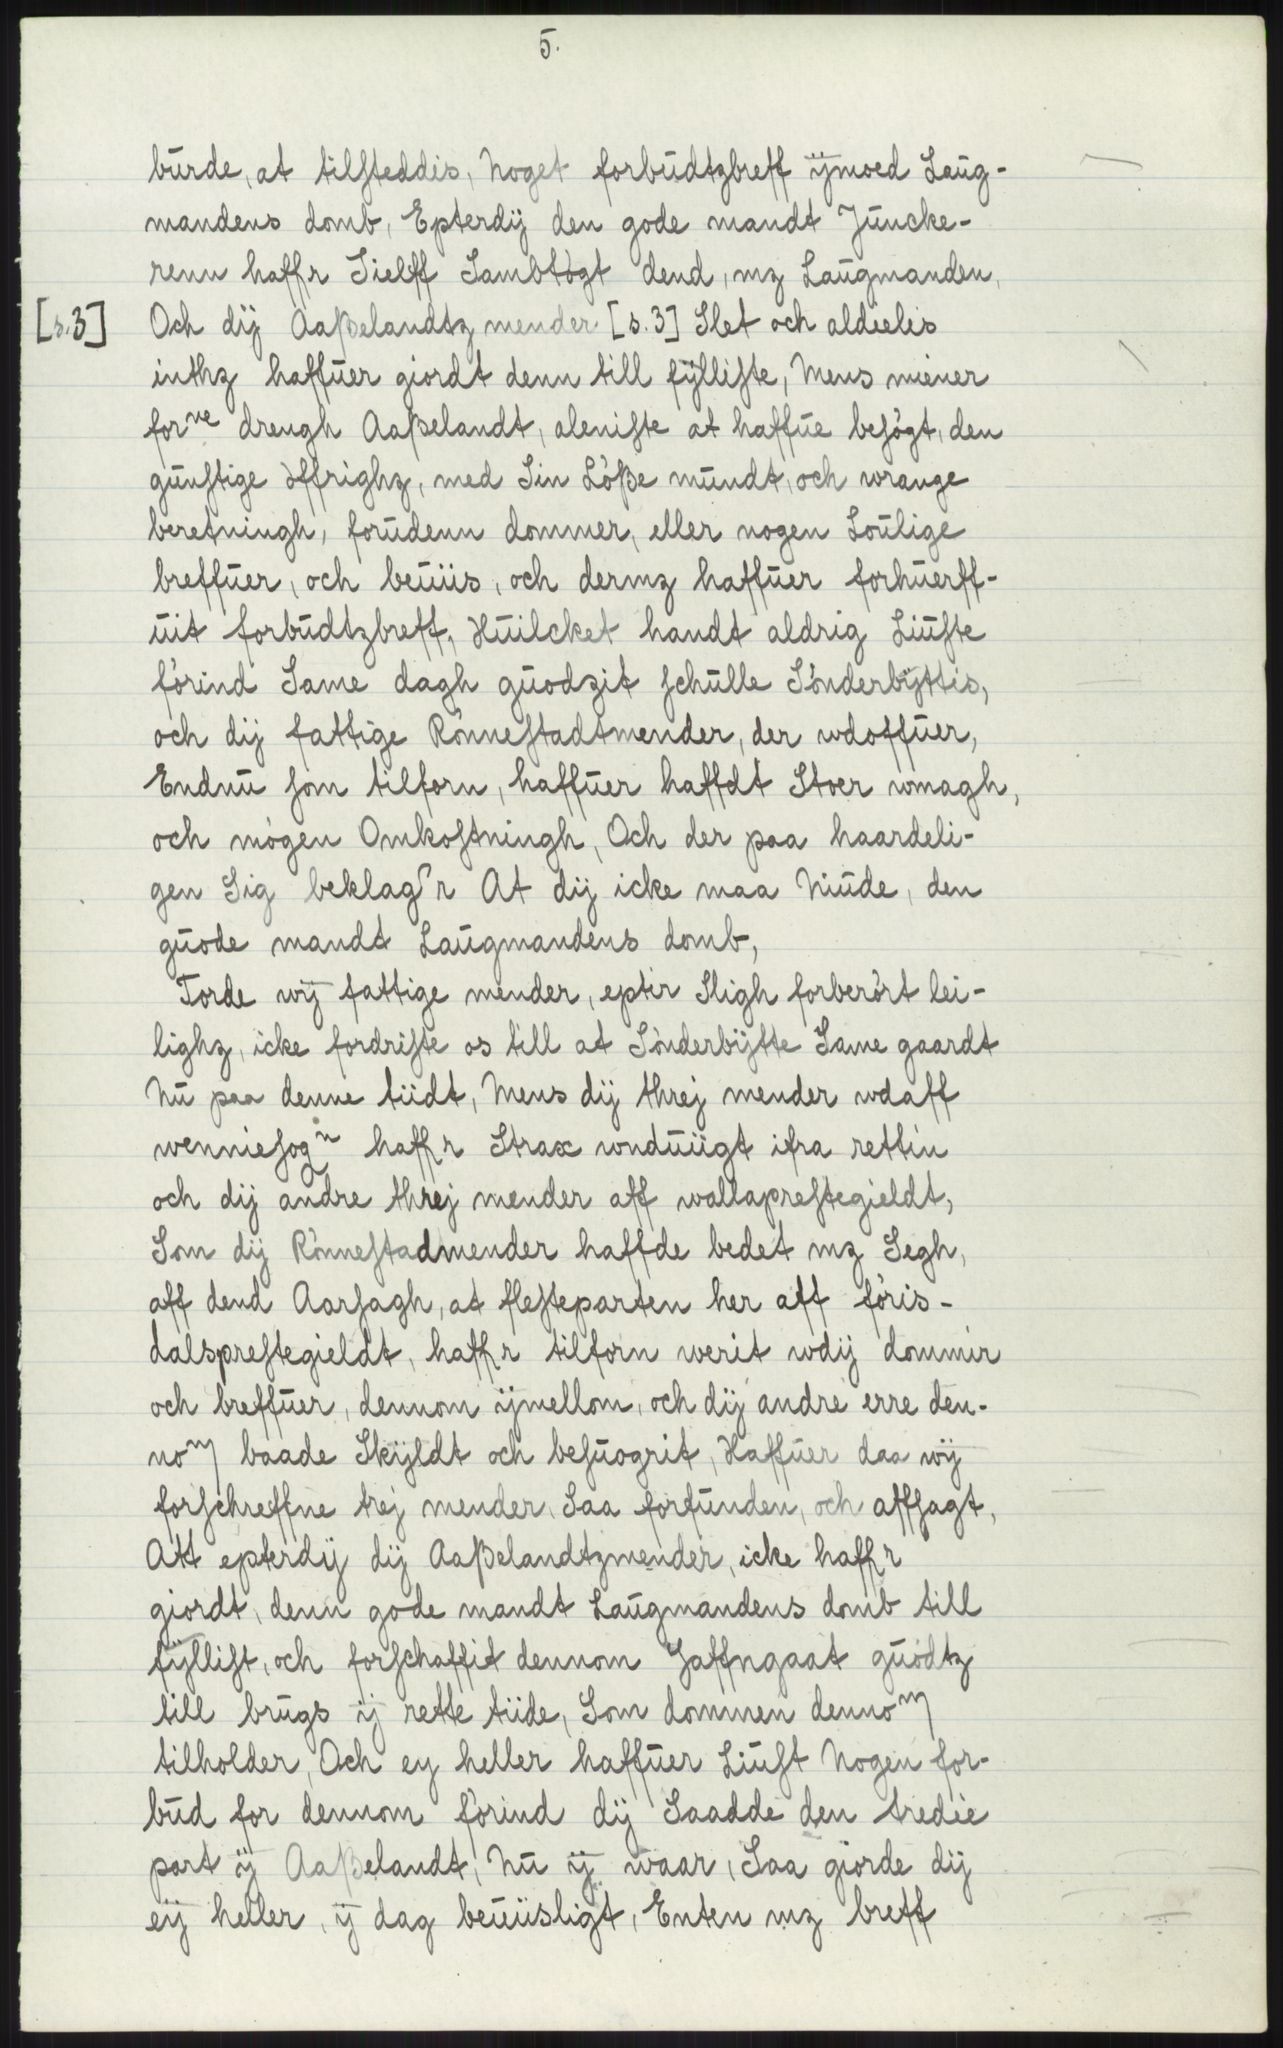 5.
burde, at tilsteddis, Noget forbudtzbreff ijmoed Laug-
mandens domb, Epterdij den gode mandt Juncke-
renn haffr Sielff Sambtøgt dend, mz Laugmanden,
[s.3] Och dij Aaßelandtz mender [s.3] Slet och aldeelis
inthz haffuer giordt denn till fylliste, Mens miener
forne drengh Aaßelandt, aleniste at haffue besøgt, den
gunstige øffrighz, med Sin Løße mundt, och wrange
beretningh, forudenn dommer, eller nogen Loulige
breffuer, och beuiis, och dermz haffuer forhuerff-
uit forbudtzbreff, Huilcket handt aldrig Liuste
førind Same dagh guodzit schulle Sønderbyttis,
och dij fattige Rønnestadtmender, der wdoffuer,
Endnu som tilforn, haffuer haffdt Stoer wmagh,
och møgen Omkostningh, Och der paa haardeli-
gen Sig beklagr At dij icke maa Niude, den
guode mandt Laugmandens domb,
Torde wij fattige mender, eptir Sligh forberørt lei-
lighz, icke fordriste os till at Sønderbytte Same gaardt
Nu paa denne tiidt, Mens dij threj mender wdaff
wenniesogn haffr Strax wnduiigt ifra rettin
och dij andre threj mender aff wallaprestegieldt,
Som dij Rønnestadmender haffde bedet mz Segh,
aff dend Aarsagh, at flesteparten her aff føris-
dalsprestegieldt, haffr tilforn werit wdij dommir
och breffuer, dennom ijmellom, och dij andre erre den-
nom baade Skyldt och besuogrit, Haffuer daa wij
forschreffne trej mender, Saa forfunden, och affsagt,
Att epterdij dij Aaßelandtzmender, icke haffr
giordt, denn gode mandt Laugmandens domb till
fyllist, och forschaffit dennom Jaffngaat guodtz
till brugs ij rette tiide, Som dommen dennom
tilholder, Och ey heller haffuer Liust Nogen for-
bud for dennom førind dij Saadde den tredie
part ij Aaßelandt, Nu ij waar, Saa giorde dij
eij heller, ij dag beuiisligt, Enten mz breff